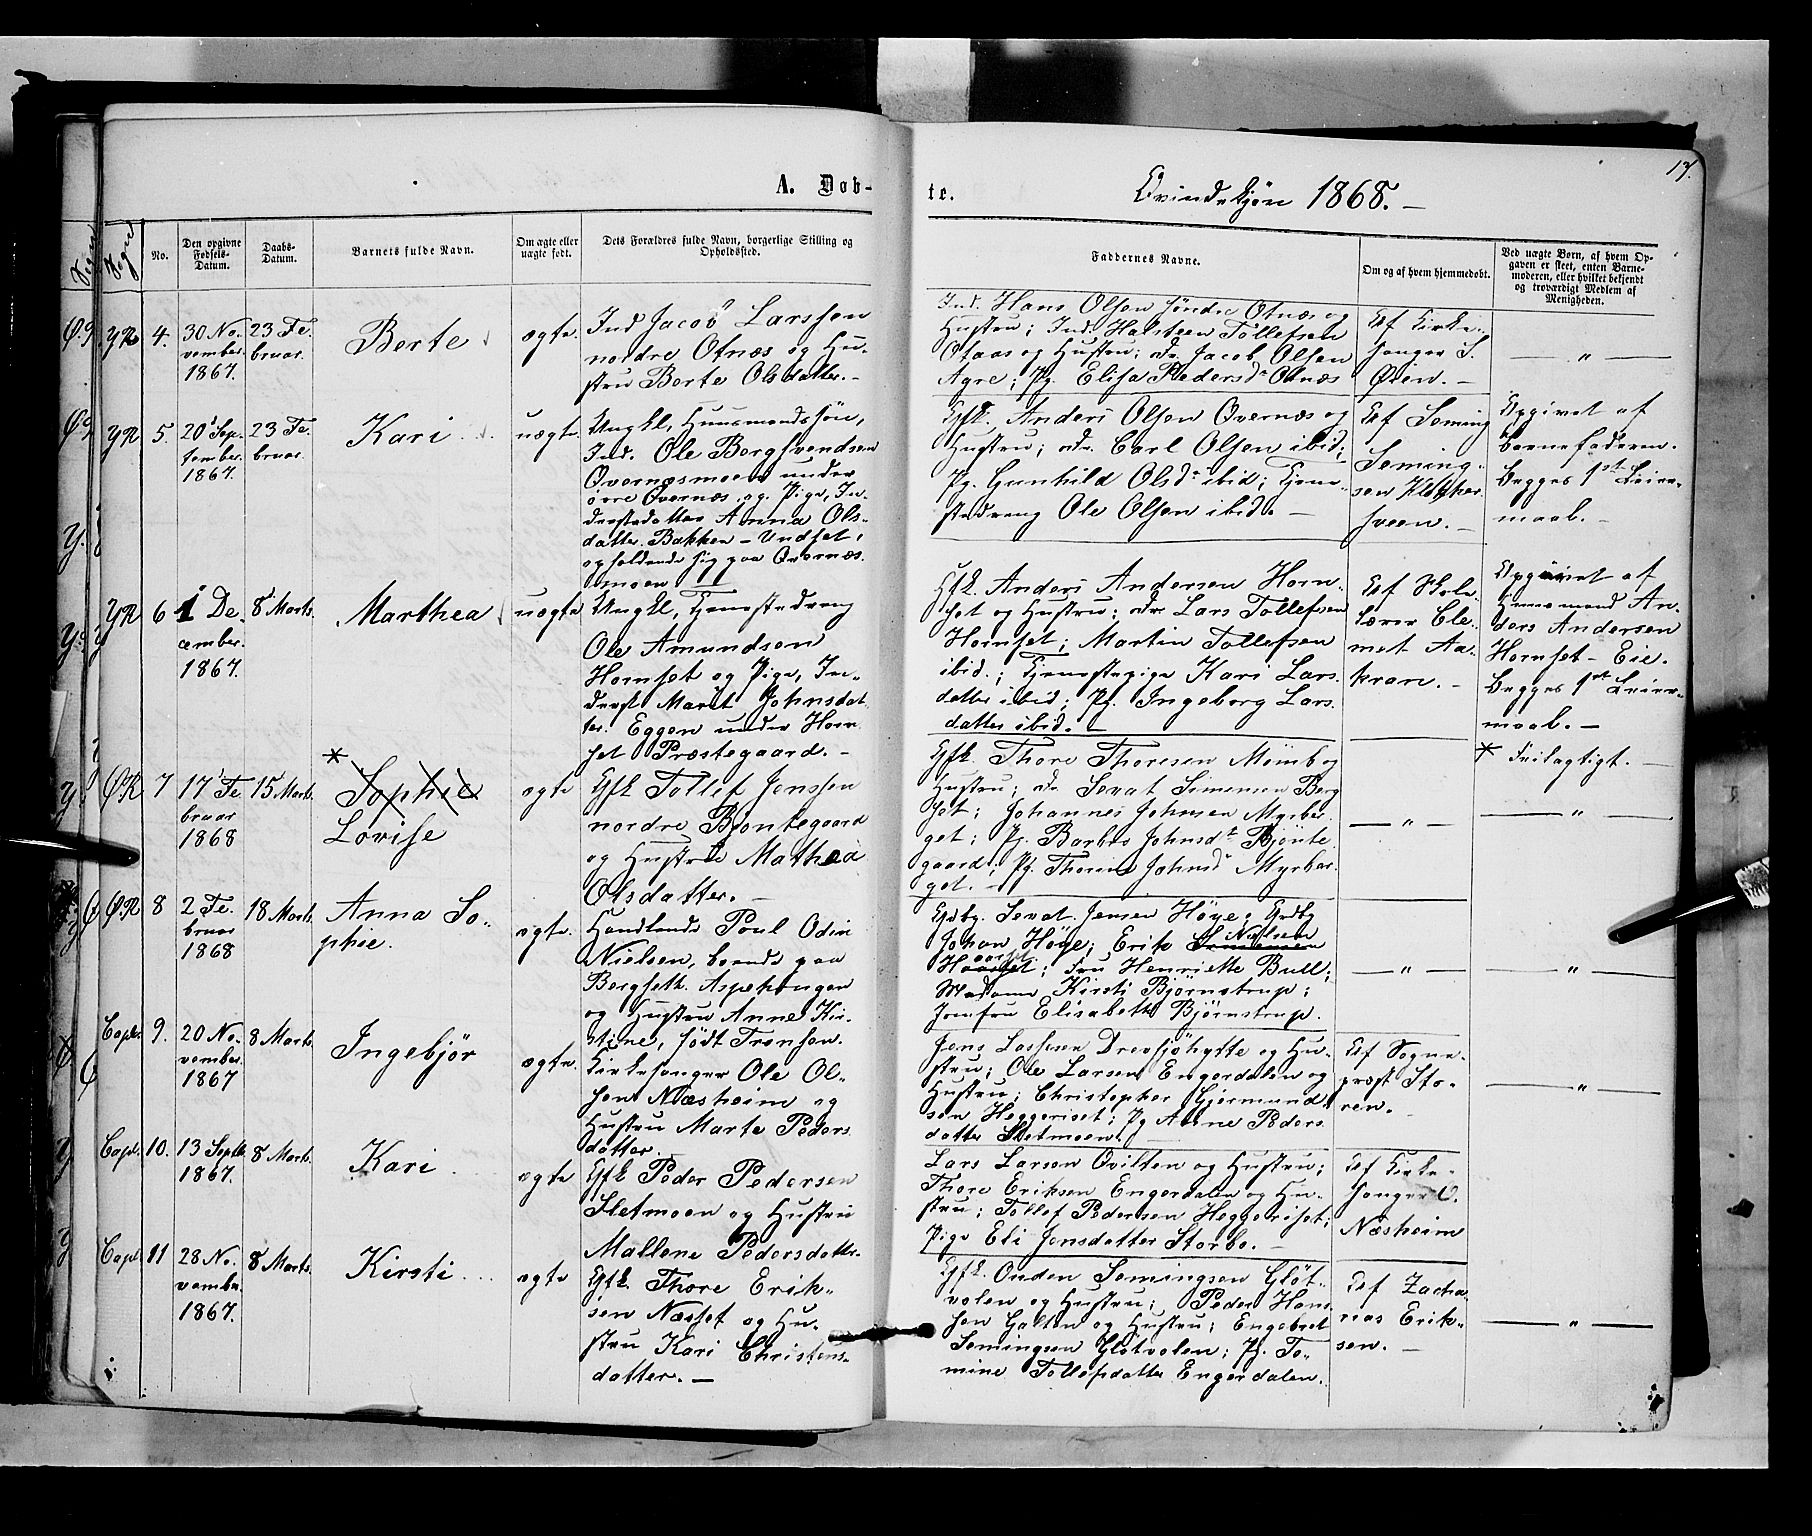 17.
A. Døb-
te.
Qvindekjøn 1868. –
Sogn
No.
Den opgivne Fødsels-Datum.
Daabs-Datum.
Barnets fulde Navn.
Om ægte eller uægte født.
Dets Forældres fulde Navn, borgerlige Stilling og Opholdssted.
Faddernes Navne.
Om og af hvem hjemmedøbt.
Ved uægte Børn, af hvem Opgaven er skeet, enten Barnemoderen, eller hvilket bekjendt og troværdigt Medlem af Menigheden.
YR
4.
30 No-
vember
1867.
23 Fe
bruar
Berte
ægte
Ind Jacob Larssen
nordre Otnæs og Hu-
stru Berte Olsdatter. –
Ind. Hans Olsen søndre Otnæs og
Hustru; Ind. Halsteen Tollefsen
Otnæs og Hustru; do. Jacob Olsen
Agre; Pg. Elisa Pedersdr Otnæs
Af Kirke-
sanger S.
Øien. –
– " –
YR
5.
20 Sep-
tember
1867.
23 Fe
bruar
Kari
uægte
Ungkl, Huusmandssøn,
Ind. Ole Bergsvendsen
Øvernæsmoen under
øvre Øvernæs og Pige, In-
derstedatter Anna Ols-
datter Bakken – Undset,
opholdende sig paa Øvernæs
moen
Gfk. Anders Olsen Øvernæs og
Hustru; do. Carl Olsen ibid;
Pg. Gunhild Olsdr ibid; Tjene-
stedreng Ole Olsen ibid. –
Af Seming
Seming-
sen
sveen. –
Opgivet af
barnefaderen.
Begges 1st Leier-
maal. –
YR
6
1 De-
cember
1867.
8 Marts.
Marthea
uægte
Ungkl, Tjenestedreng
Ole Amundsen
Hornset og Pige, In-
derst Marit Johnsdat
ter Eggen under Horn
set Præstegaard. –
Gfk. Anders Andersen Horn-
set og Hustru; do. Lars Tollefsen
Hornset; Martin Tollefsen
ibid.; Tjenestepige Kari Lars
datter ibid; Pg. Ingeborg Lars
datter ibid. –
Af Skole-
lærer Cle-
met Aa-
kran. –
Opgivet af
Huusmand An-
ders Andersen
Hornset-Eie.
Begges 1st Leier-
maal. –
* Feilagtigt. –
ØR
7
17 Fe
bruar
1868
15 Marts.
*
Sophie
Lovise
ægte
Gfk Tollef Jenssen
nordre Bjøntegaard
og Hustru Mathea
Olsdatter. –
Gfk. Thore Thoresen Momb og
Hustru; do. Sevat Simensen Berg
set; Johannes Johnsen Myrber
get; Pg. Barbro Johnsdr Bjønte
gaard; Pg. Thorine Johnsd Myrber
get. –
– " –
– " –
ØR
8
2 Fe
bruar
1868
18 Marts.
Anna So-
phie.
ægte.
Handlende Poul Odin
Nielsen, boende paa
Bergseth. Aspehaugen
og Hustru Anne Kir-
stine, født Tronsen.
Grdbg. Sevat Jensen Høye; Grdbg
Johan Høye; Erik Nielsen
Haarset; Fru Henriette Bull;
Madame Kirsti Bjørnstrup;
Jomfru Elisabeth Bjørnstrup.
– " –
– " –
Capel
9.
20 No-
vember
1867
8 Marts.
Ingebjør
ægte.
Kirkesanger Ole Ol-
sen Næsheim og
Hustru Marte Peders
datter.
Jens Lassesen Drevsjøhytte og Hu-
stru; Ole Larsen Engerdalen og
Hustru; Christopher Gjermund
sen Heggeriset; Pg Anne Peders
datter Sletmoen. –
Af Sogne-
præst Sto-
ren. –
– " –
Capel
10.
13 Septb.
1867.
8 Marts.
Kari
ægte
Gfk Peder Pedersen
Sletmoen og Hustru
Mallene Pedersdatter.
Lars Larsen Qvilten og Hustru;
Thore Eriksen Engerdalen og Hu-
stru; Tollef Pedersen Heggeriset;
Pige Eli Jensdatter Storbo. –
Af Kirke-
sanger O.
Næsheim
Capel
11
28 No-
vember
1867.
8 Marts.
Kirsti
ægte
Gfk. Thore Erik-
sen Næsset og Hu-
stru Kari Christens-
datter. –
Gfk. Ouden Semingsen Gløt-
volen og Hustru; Peder Hans
sen Galten og Hustru; Engebret
Semingsen Gløtvolen; Pg. To-
mine Tollefsdatter Engerdalen.
Af Zacha
rias Erik-
sen. –
– " –